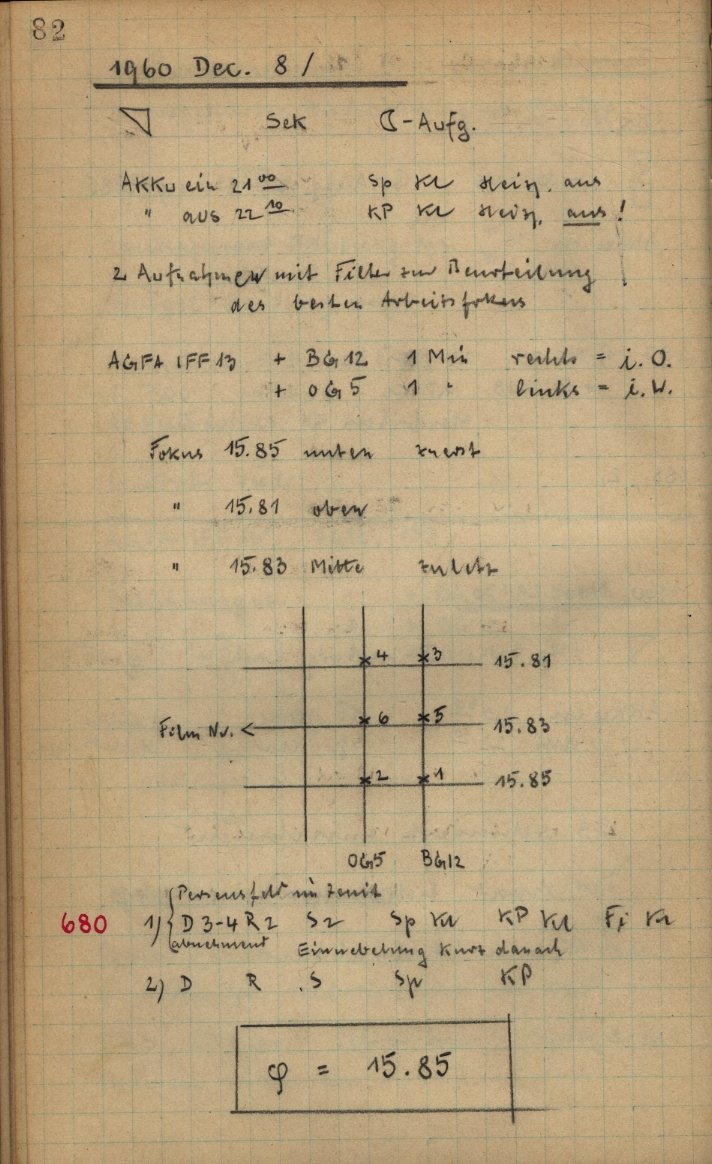 82
1960 Dec. 8/
Sek ☾-Aufg.
Akku ein 21 00 Sp Kl Heiz. aus
" aus 22 10 KP Kl Heiz. aus!
2 Aufnahmen mit Filter zur Beurteilung
des besten Arbeitsfokus
AGFA IFF 13 + BG12 1 Min rechts = i.O.
+ OG5 1 " links = i.W.
Fokus 15.85 unten zuerst
" 15.81 oben
" 15.83 Mitte zuletz
4 3 15.81
Film Nr. < 6 5 15.83
2 1 15.85
OG5 BG12
Perseusfeld im Zenit
680 1) D 3-4 R2 S2 Sp Kl KP Kl Fi Kl
abnehmend Einnebelung kurz danach
2) D R S Sp KP
φ = 15.85